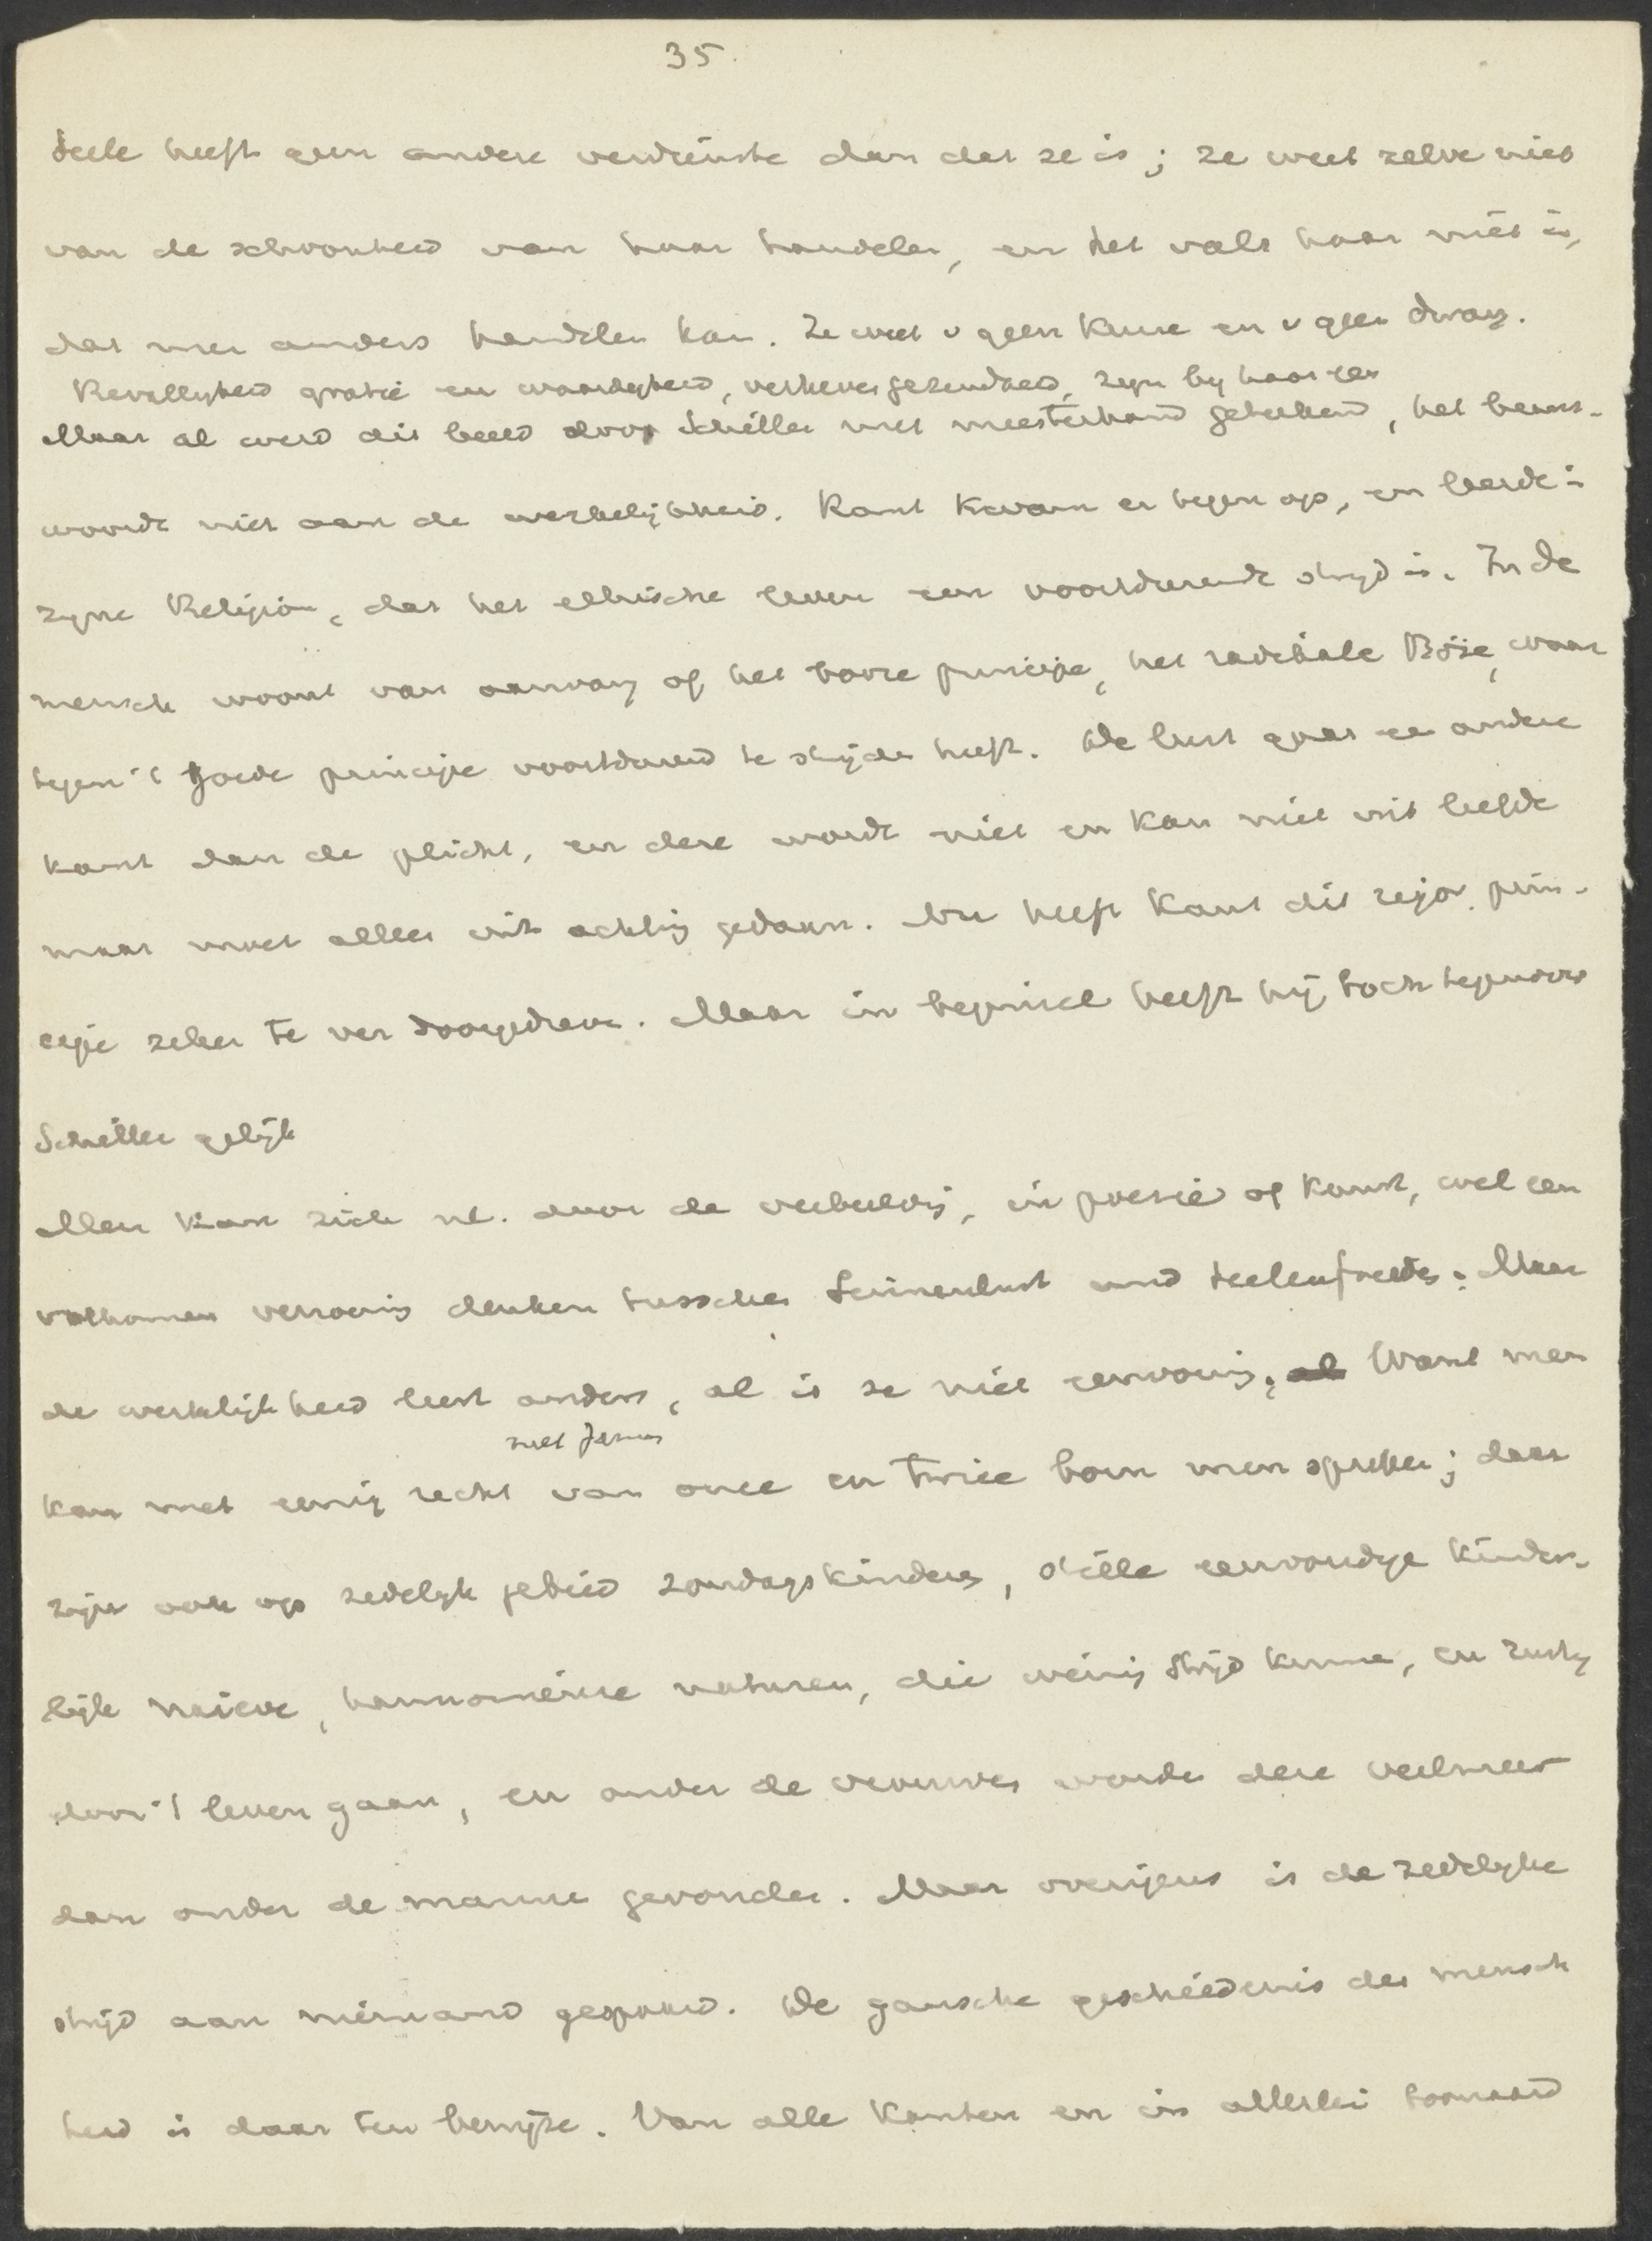 35.
Seele heeft geen andere verdienste dan dat ze is; ze weet zelve niet
van de schoonheid van haar handelen, en het valt haar niet in,
dat men anders handelen kan. Ze weet v geen keuze en v geen dwang.
Bevalligheid gratie en waardigheid, verheven gezindheid, zijn bij haar een
Maar al werd dit beeld door Schiller met meesterhand geteekend, het beant-
woordt niet aan de werkelijkheid. Kant kwam er tegen op, en leerde in
zijne Religion, dat het ethische leven een voortdurende strijd is. In de
mensch woont van aanvang af het booze principe, het radikale Böse, waar
tegen 't goede principe voortdurend te strijden heeft. De lust gaat een andere
kant dan de plicht, en deze wordt niet en kan niet uit liefde
maar moet alleen uit achting gedaan. Nu heeft Kant dit rigor. prin-
cipe zeker te ver doorgedreven. Maar in beginsel heeft hij toch tegenover
Schiller gelijk
Men kan zich nl. door de verbeelding, in poezie of kunst, wel een
volkomen verzoening denken tusschen Sinnenlust und Seelenfrieden. Maar
de werkelijkheid leert anders, al is ze niet eenvormig. Want men
met James
kan met eenig recht van once en twice born men spreken; daar
zijn ook op zedelijk gebied zondagskinderen, stille eenvoudige kinder-
lijk naieve, harmonieuse naturen, die weinig strijd kennen, en rustig
door 't leven gaan, en onder de vrouwen worden deze veelmeer
dan onder de mannen gevonden. Maar overigens is de zedelijke
strijd aan niemand gespaard. De gansche geschiedenis der mensch
heid is daar ten bewijze. Van alle kanten en in allerlei toonaard